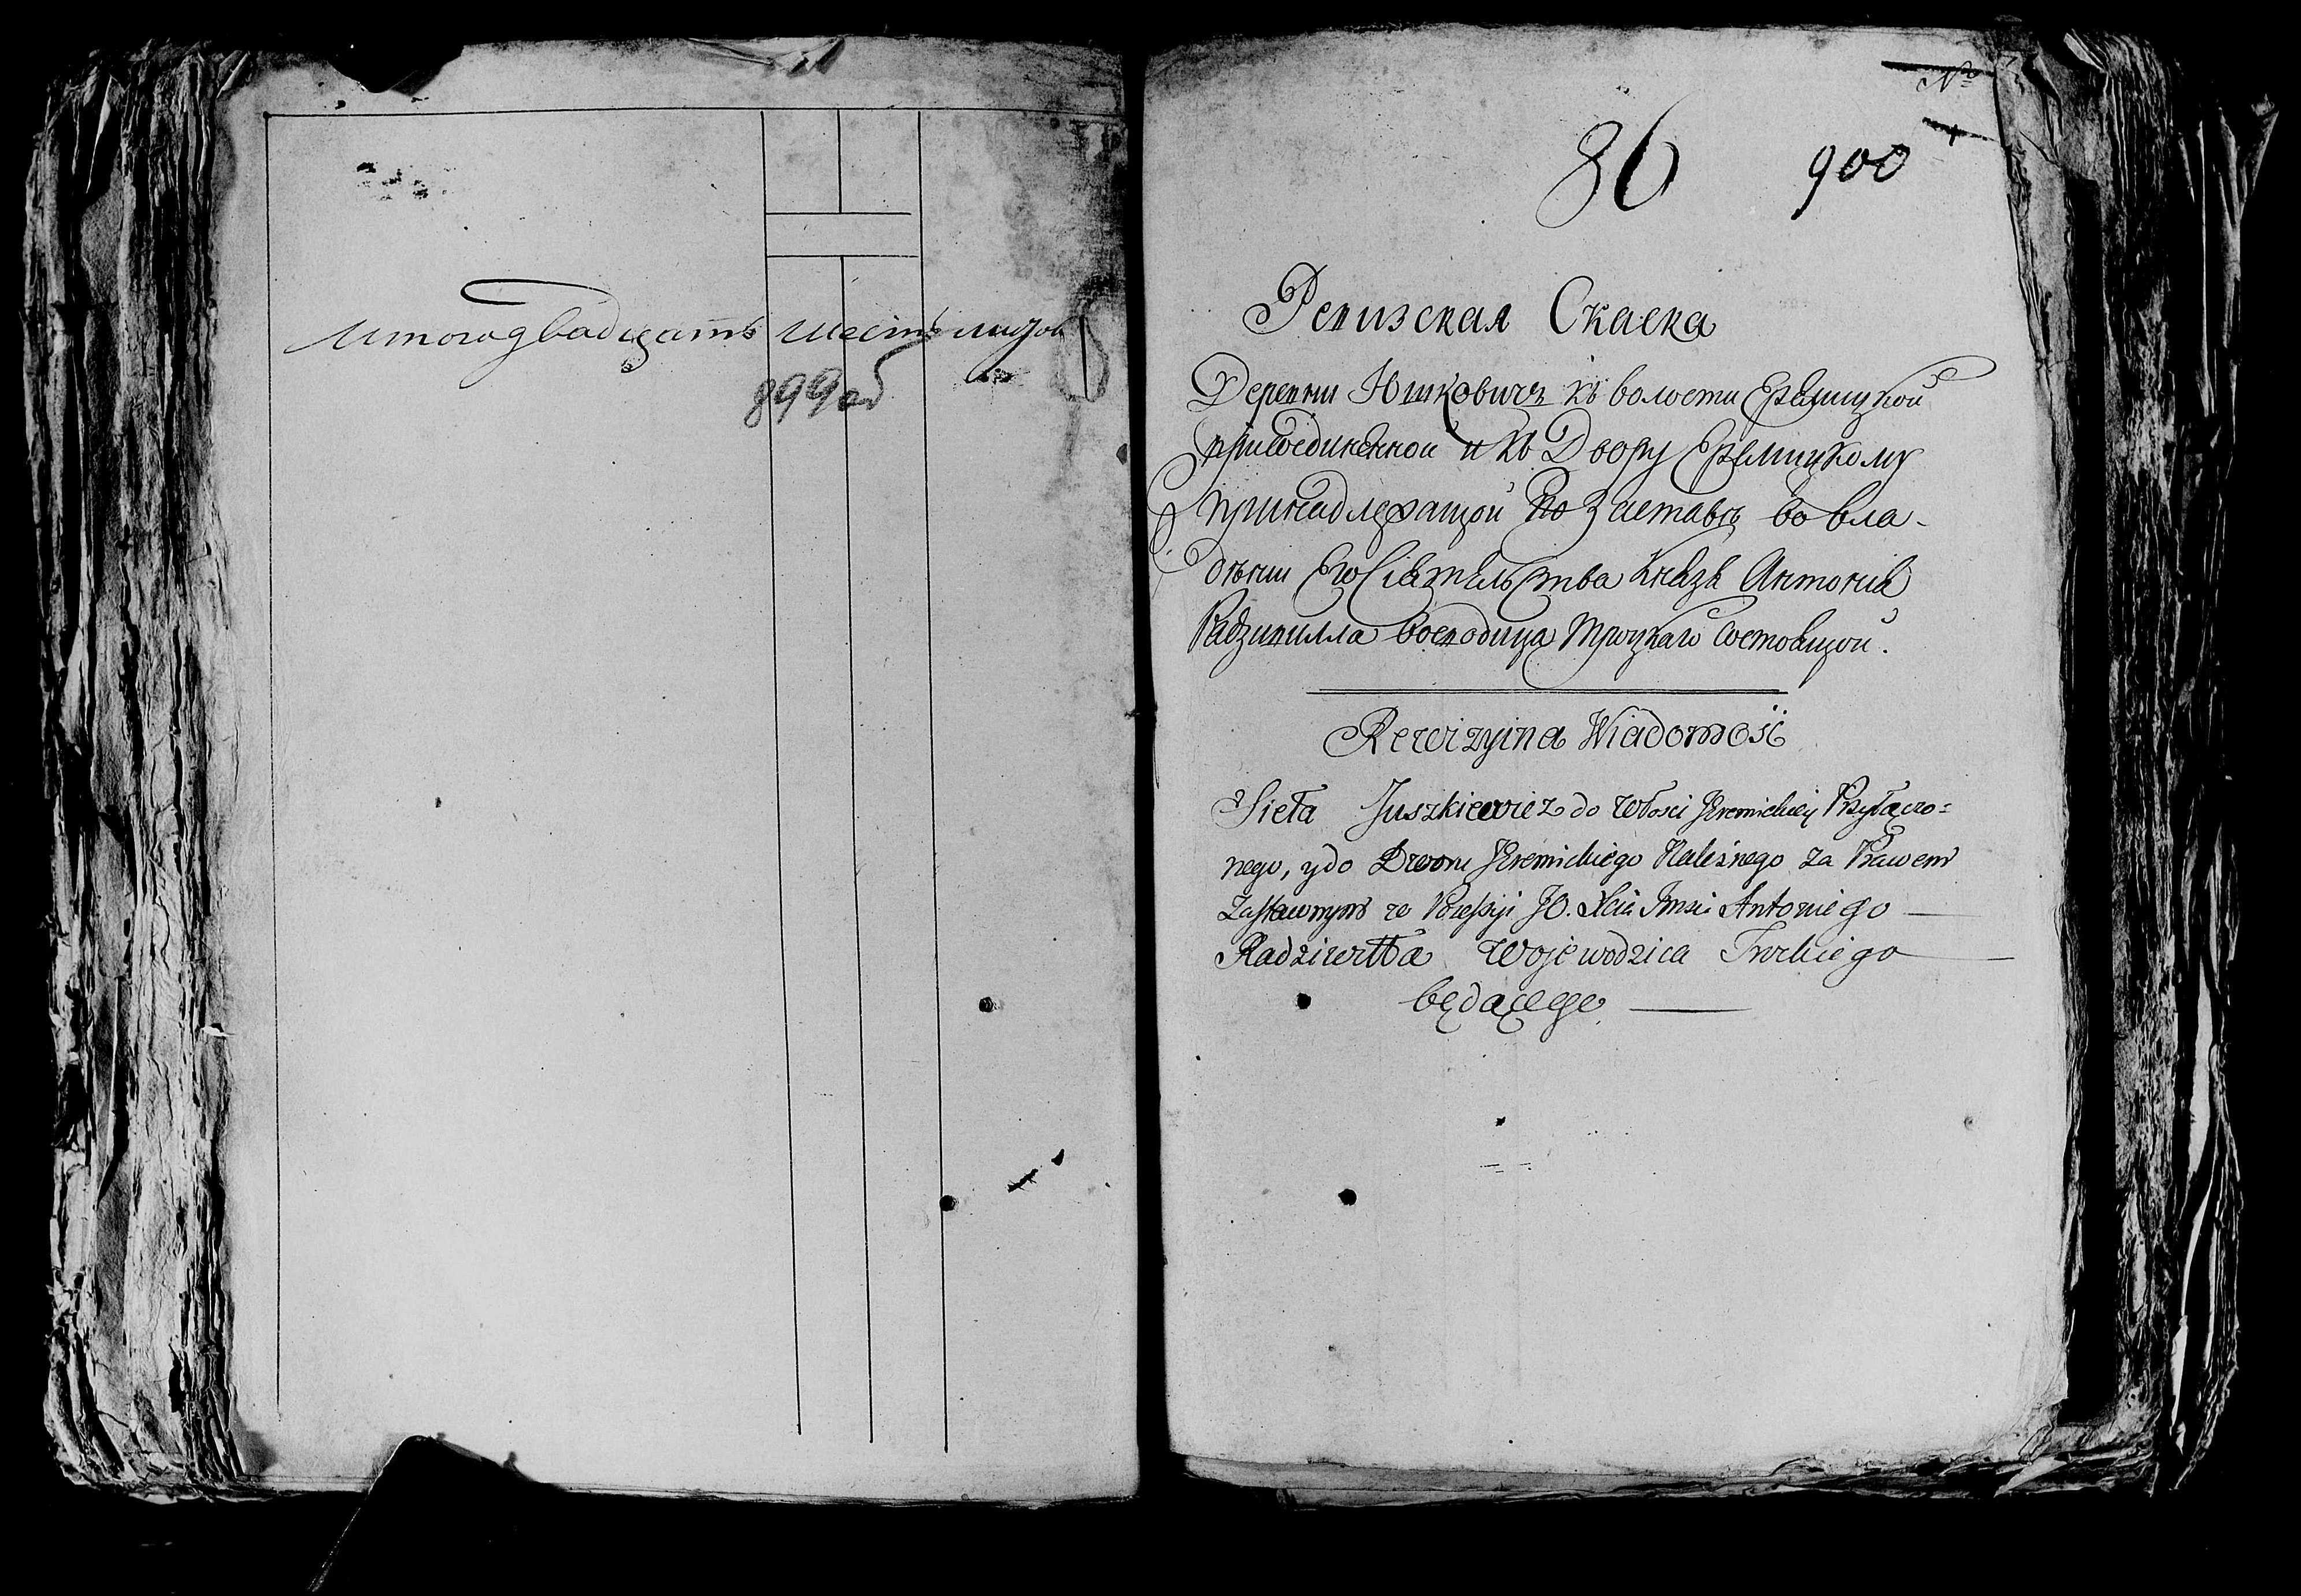 Итого двадцать шесть листов
899 об
№
86 900
Ревизская Скаска
Деревни Юшковичъ къ волости Еремицкой
присоединенной и къ Двору Еремицкому
принадлежащой по Заставѣ во вла-
дѣнии Его Сіятельства Князя Антонія
Радзивилла воеводича Троцкаго состоящой.
Rewizyina Wiadomość
Sieła Juszkiewicz do Włosci Jeremickiey Przyłączo=
nego, y do Dworu Jeremickiego Należnego za Prawem
Zastawnym w Possessyi JO. Xcia Imsci Antoniego
Radziwiłła Wojewodzica Trockiego
będącego